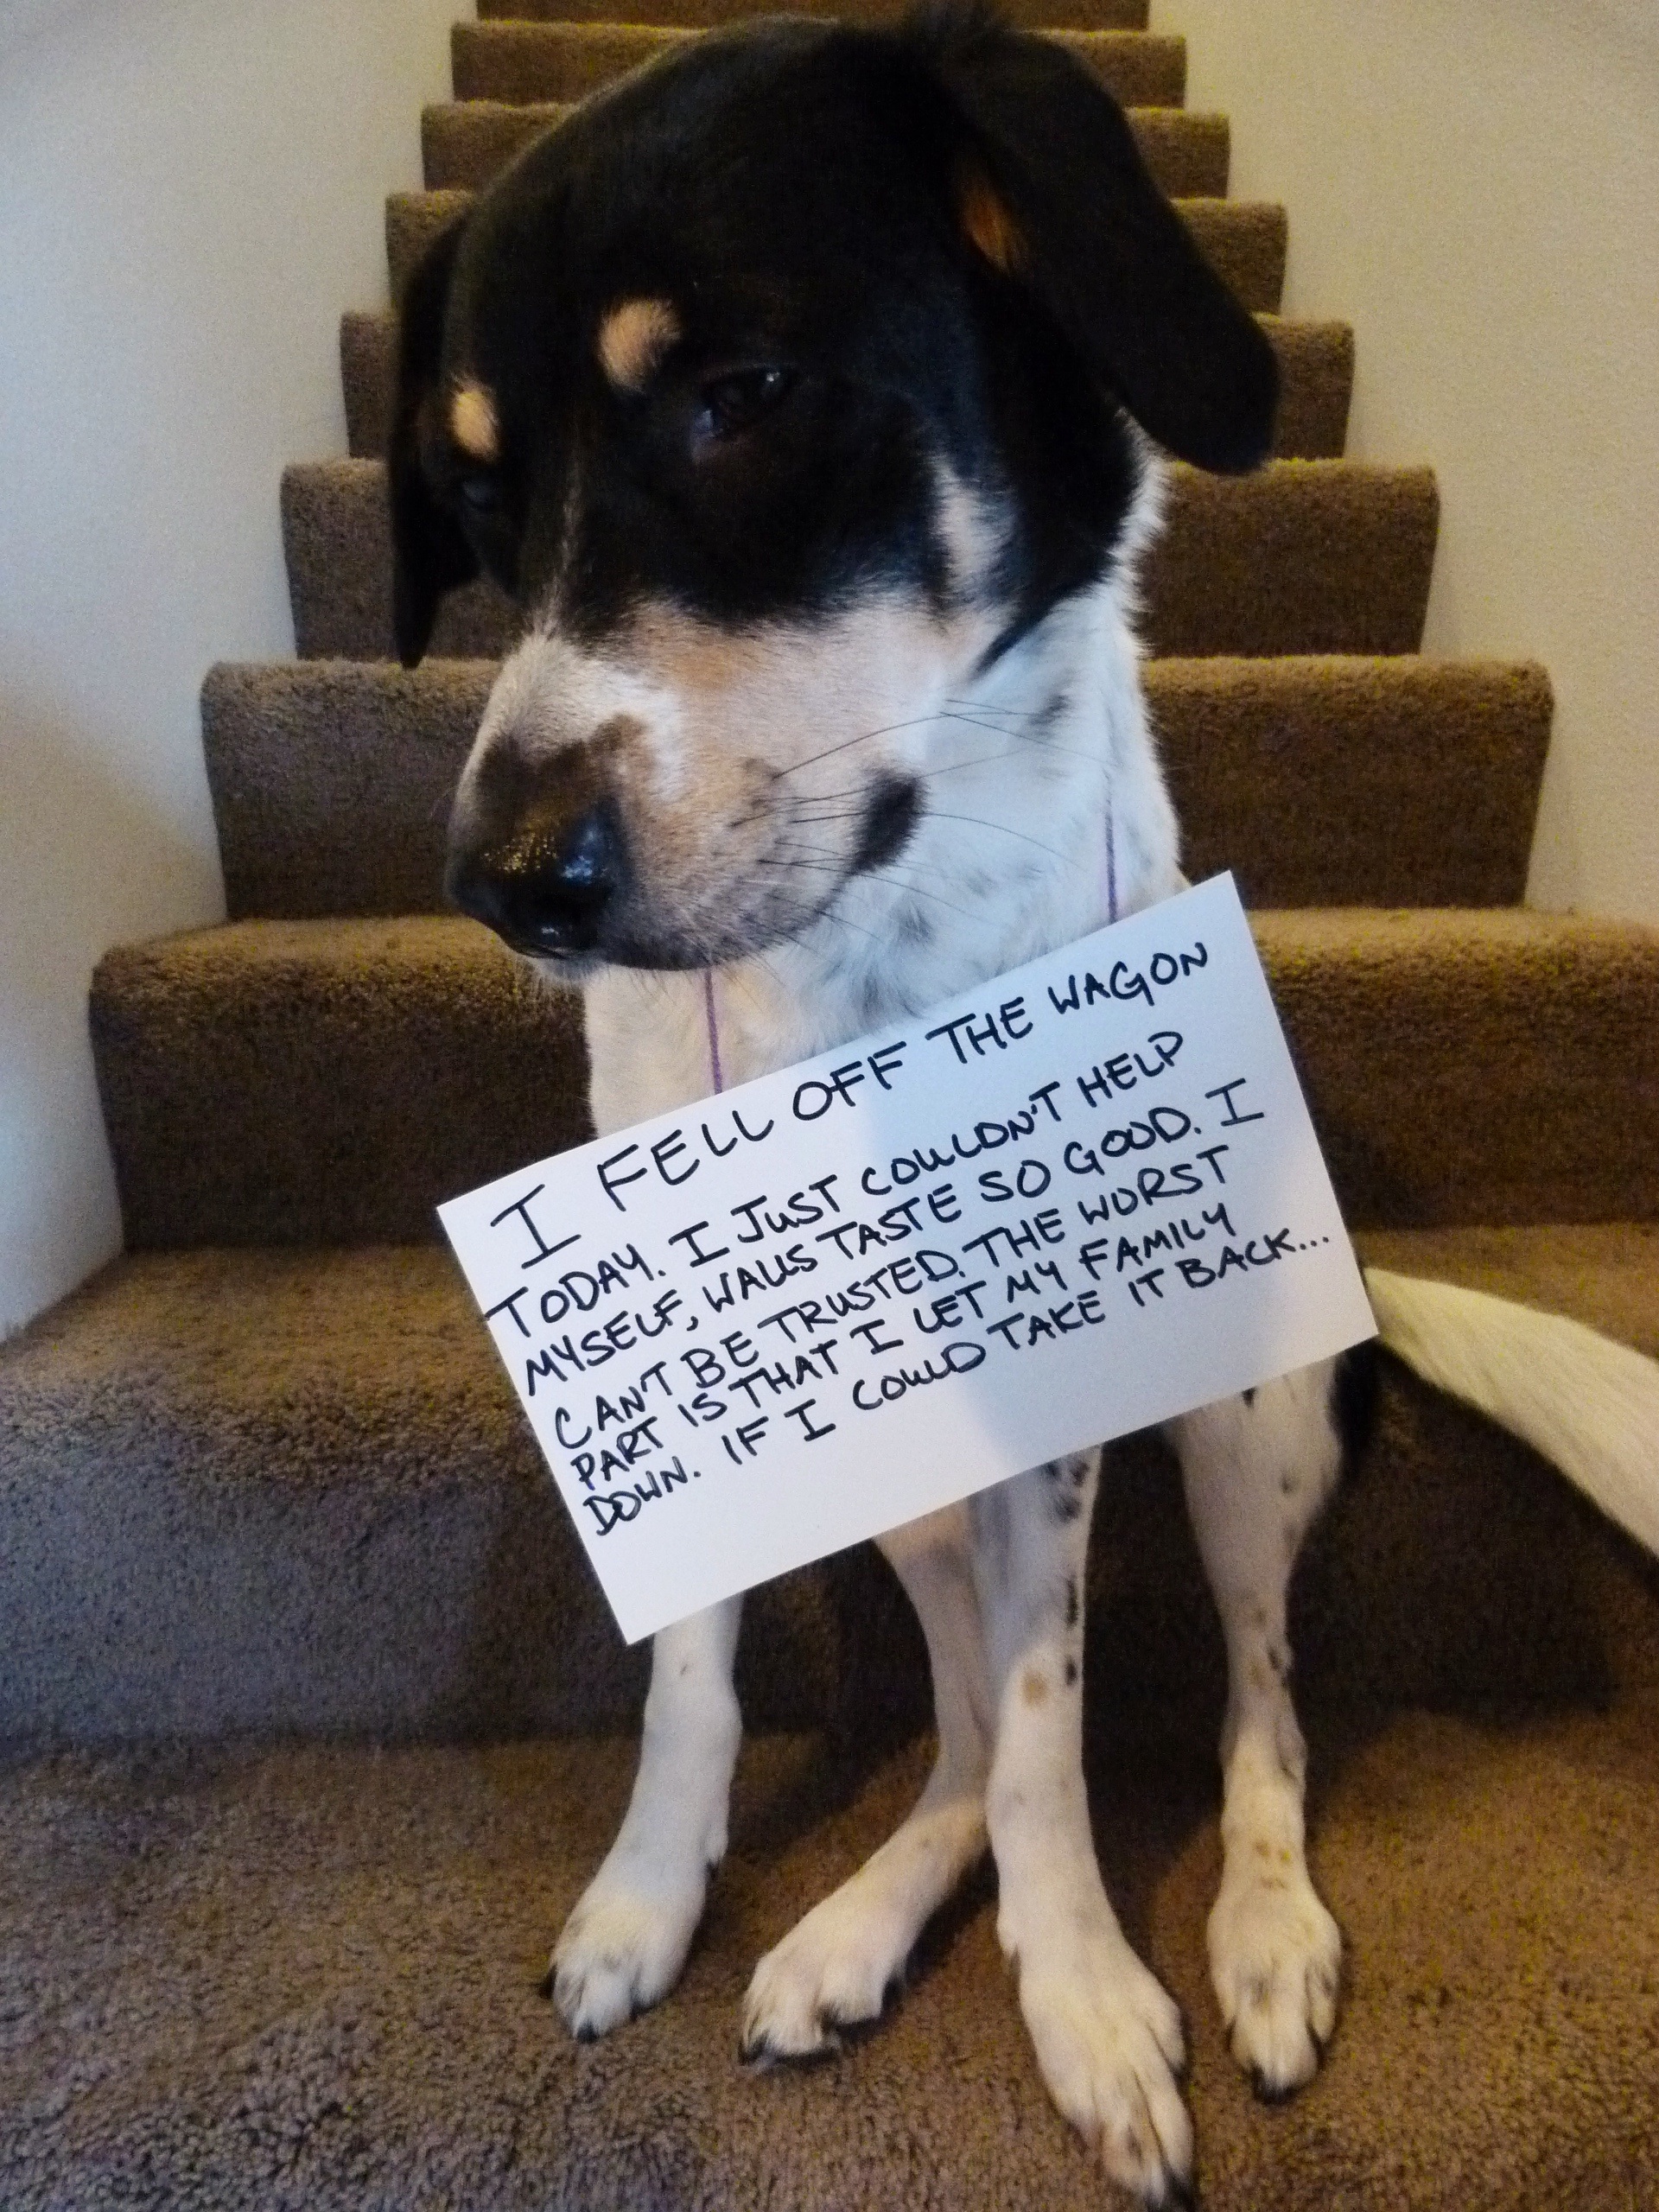 I FELL OFF THE WAGON
TODAY. I JUST COULDN'T HELP
MYSELF, WALLS TASTE SO GOOD. I
CAN'T BE TRUSTED. THE WORST
PART IS THAT I LET MY FAMILY
DOWN. IF I COULD TAKE IT BACK...